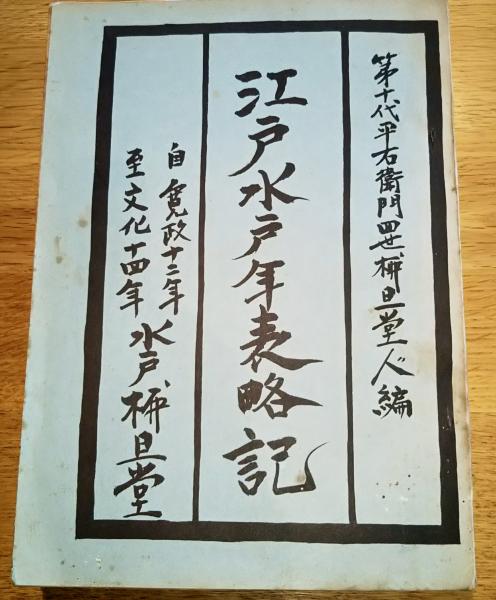 第十代平右衛門四世栴旦堂人編
江戸水戸年表略記
自寛政十二年
至文化十四年 水戸栴旦堂